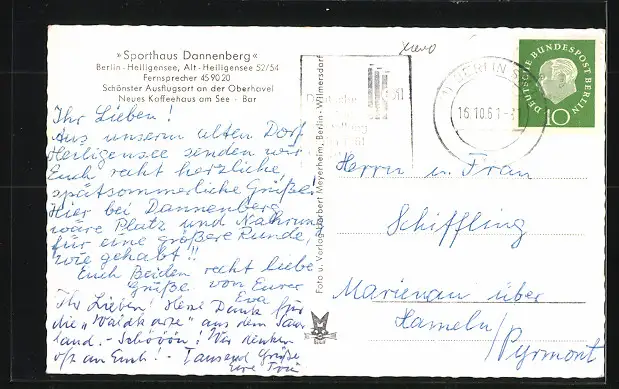 »Sporthaus Dannenberg«
Berlin-Heiligensee, Alt-Heiligensee 52/54
Fernsprecher 45 90 20
Schönster Ausflugsort an der Oberhavel
Neues Kaffeehaus am See - Bar
Ihr Lieben!
Aus unserm alten Dorf
Heiligensee senden wir
Euch recht herzliche
spätsommerliche Grüße!
Hier bei Dannenberg
wäre Platz und Nahrung
für eine größere Runde,
wie gehabt!!
Euch Beiden recht liebe
Grüße von Eurer
Eva
Ihr Lieben! Dank für
die "Waidkatze" aus dem Sauer
land. - Schöön! Wir denken
oft an Euch! - Tausend Grüße
Eure
Foto u. Verlag Herbert Meyerheim, Berlin-Wilmersdorf
BERLIN
16.10.61
DEUTSCHE BUNDESPOST BERLIN
10
Herrn u. Frau
Schiffling
Marienau über
Hameln/
Pyrmont